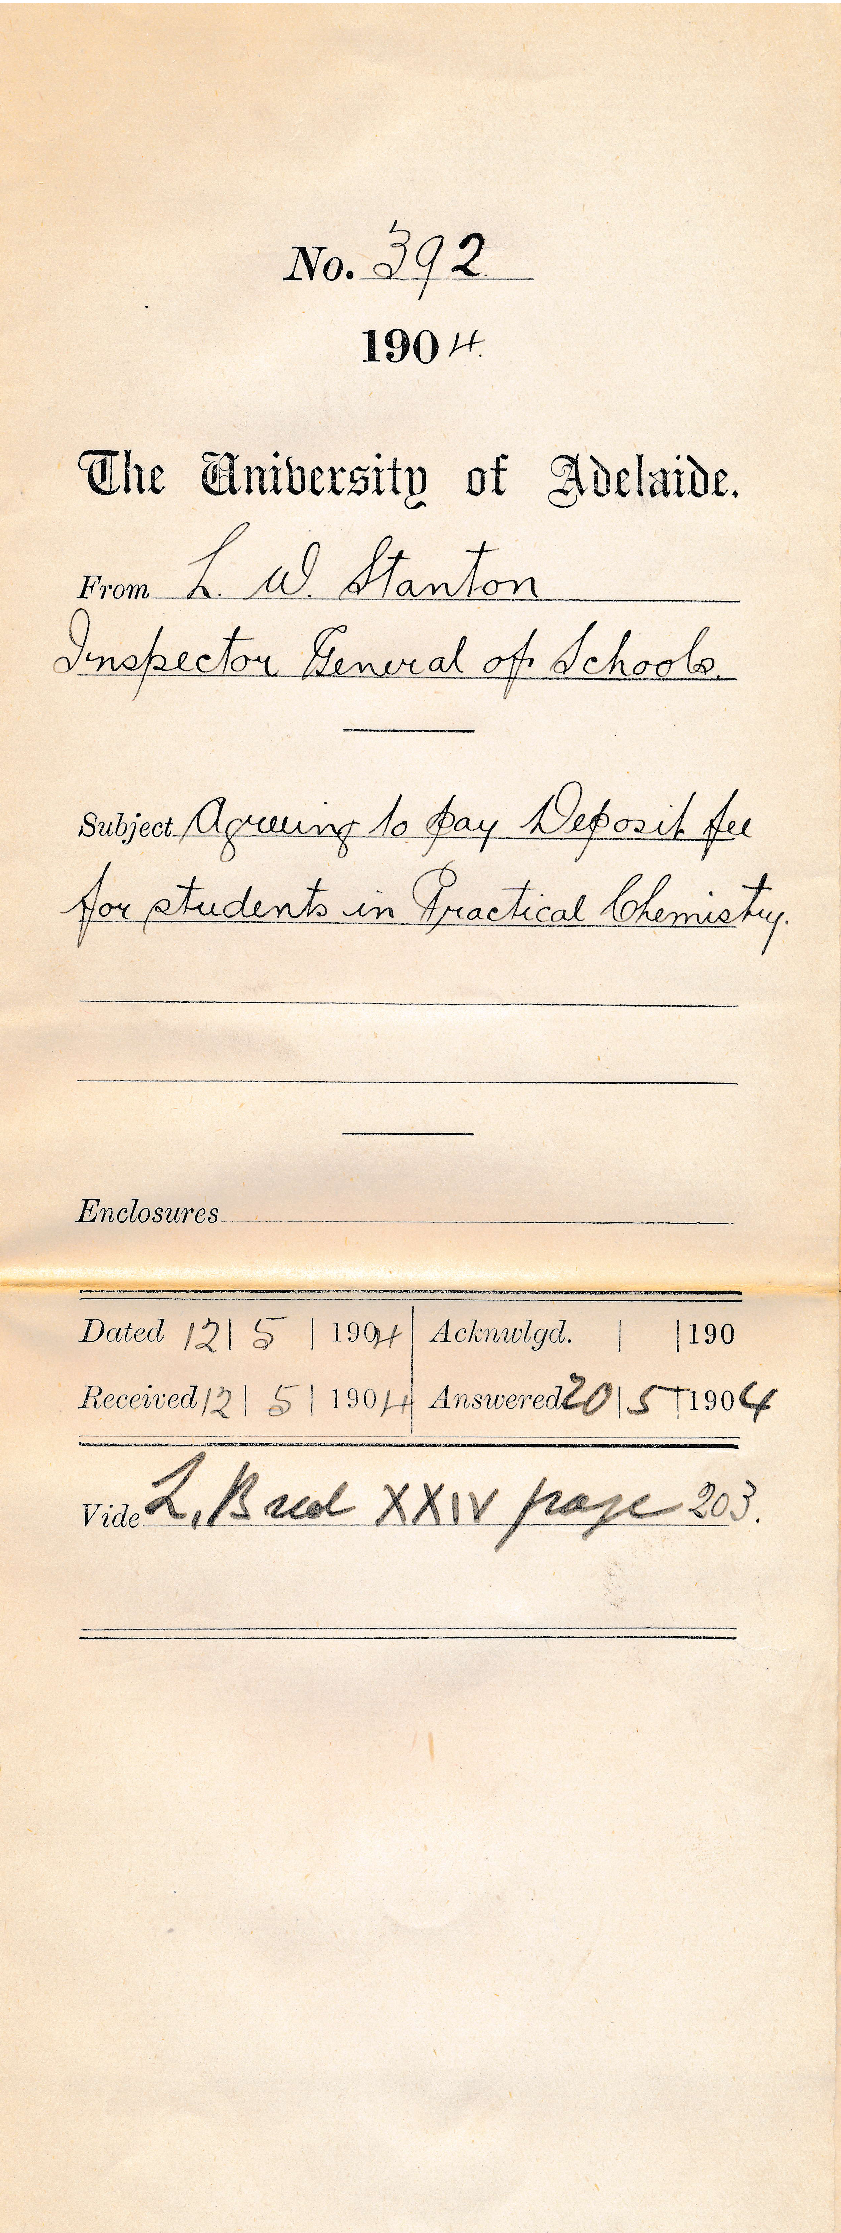 No. 392
1904.
The University of Adelaide.
From L. W. Stanton
Inspector General of Schools.
Subject Agreeing to pay Deposit fee
for students in Practical Chemistry.
Enclosures
Dated 12 | 5 | 1904 Acknwlgd. | | 190
Received 12 | 5 | 1904 Answered 20 | 5 | 1904
Vide L. B XXIV page 203.